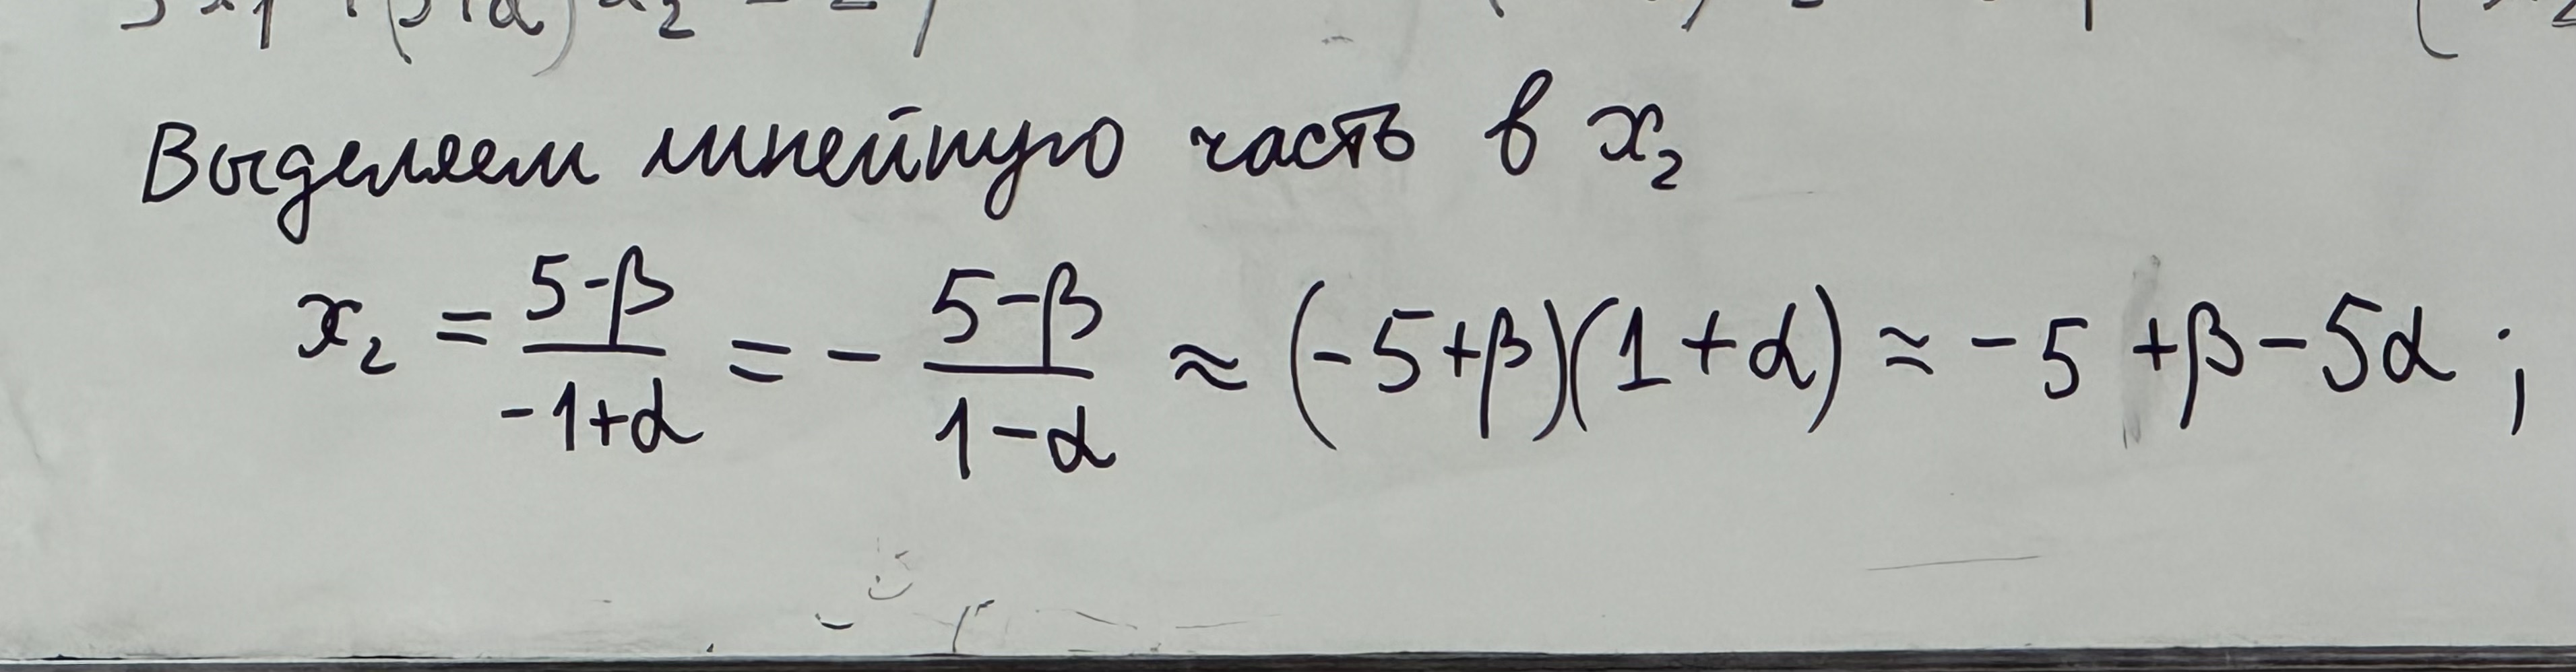 Выделяем линейную часть в x₂
x₂ = (5-β)/(-1+α) = - (5-β)/(1-α) ≈ (-5+β)(1+α) ≈ -5 +β-5α ;